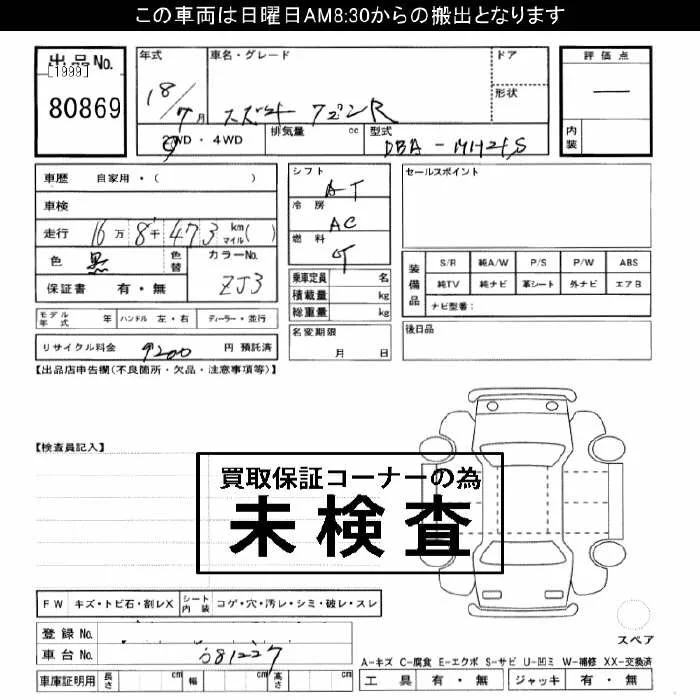 この車両は日曜日AM8:30からの搬出となります
出品No.
[1999]
80869
年式
18/7月
車名・グレード
スズキ ワゴンR
ドア
形状
2WD・4WD
排気量 cc
型式
DBA-MH21S
評価点
—
内装
車歴 自家用・( )
車検
走行 16万8千473 km マイル( )
色 黒
色替
カラーNo.
ZJ3
保証書 有・無
シフト
AT
冷房
AC
燃料
乗車定員 名
積載量 kg
総重量 kg
名変期限
月 日
セールスポイント
装備品
S/R 純A/W P/S P/W ABS
純TV 純ナビ 革シート 外ナビ エアB
ナビ型番:
後日品
モデル年式 年 ハンドル 左・右 ディーラー・並行
リサイクル料金 9200 円 預託済
【出品店申告欄(不良箇所・欠品・注意事項等)】
【検査員記入】
買取保証コーナーの為
未検査
FW キズ・トビ石・割レX
シート内装 コゲ・穴・汚レ・シミ・破レ・スレ
登録No.
車台No.
681227
車庫証明用 長さ cm 幅 cm 高さ cm
スペア
A-キズ C-腐食 E-エクボ S-サビ U-凹ミ W-補修 XX-交換済
工具 有・無 ジャッキ 有・無